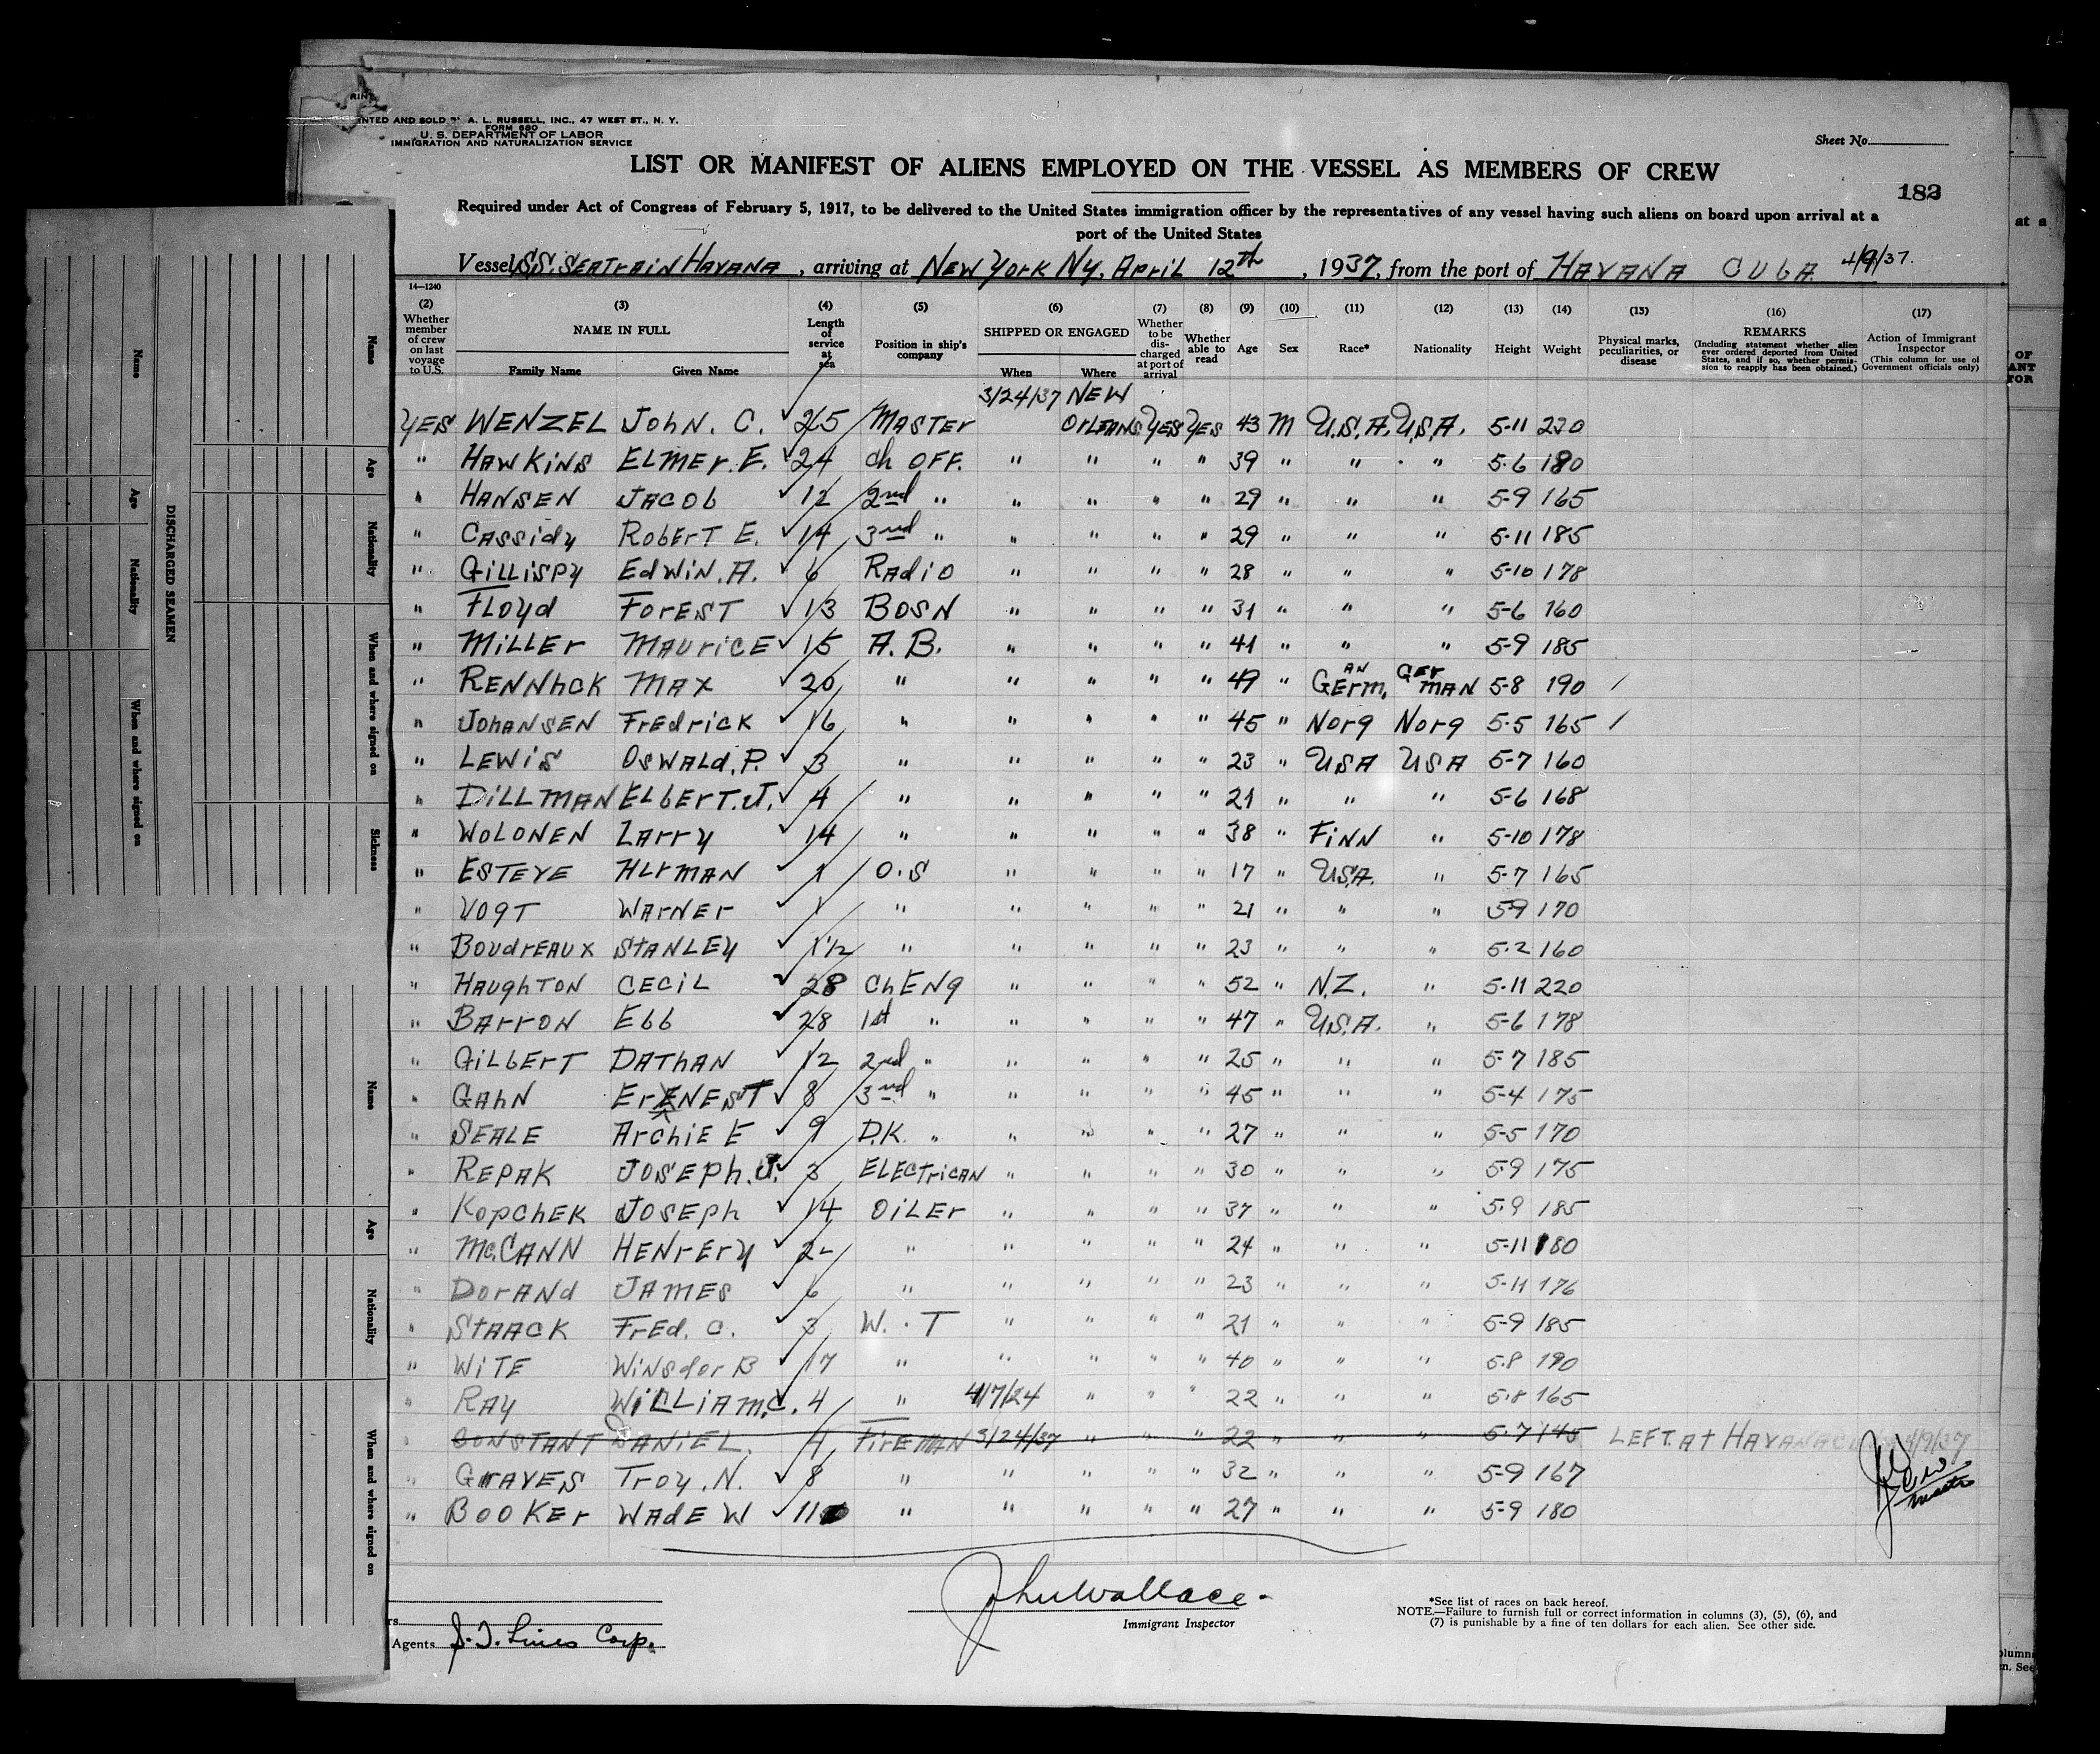 PRINTED AND SOLD BY A. L. RUSSELL, INC., 47 WEST ST., N. Y.
FORM 680
U. S. DEPARTMENT OF LABOR
IMMIGRATION AND NATURALIZATION SERVICE
Sheet No.
LIST OR MANIFEST OF ALIENS EMPLOYED ON THE VESSEL AS MEMBERS OF CREW
183
Required under Act of Congress of February 5, 1917, to be delivered to the United States immigration officer by the representatives of any vessel having such aliens on board upon arrival at a
port of the United States
Vessel S.S. SEATRAIN HAVANA, arriving at NEW YORK N.Y. April 12th, 1937, from the port of HAVANA CUBA 4/9/37.
14—1240
(2) Whether member of crew on last voyage to U.S. (3) NAME IN FULL Family Name Given Name (4) Length of service at sea (5) Position in ship's company (6) SHIPPED OR ENGAGED When Where (7) Whether to be discharged at port of arrival (8) Whether able to read (9) Age (10) Sex (11) Race* (12) Nationality (13) Height (14) Weight (15) Physical marks, peculiarities, or disease (16) REMARKS (Including statement whether alien ever ordered deported from United States, and if so, whether permission to reapply has been obtained.) (17) Action of Immigrant Inspector (This column for use of Government officials only)
3/24/37 NEW
YES WENZEL John. C. 25 MASTER OrLEANS YES YES 43 M U.S.A. U.S.A. 5-11 220
" HAWKiNS ELMEr. E. 24 Ch OFF. " " " " 39 " " " 5-6 180
" HANSEN JACOb 12 2nd " " " " " 29 " " " 5-9 165
" CASSidy RObErT E. 14 3rd " " " " " 29 " " " 5-11 185
" GiLLiSPY EdWiN. A. 6 RAdiO " " " " 28 " " " 5-10 178
" FLOyd FOrEST 13 BOSN " " " " 31 " " " 5-6 160
" MiLLEr MAUriCE 15 A. B. " " " " 41 " " " 5-9 185
" RENNhCK MAX 20 " " " " " 49 " GErmAN, GErMAN 5-8 190 /
" JOhANSEN FrEdriCK 16 " " " " " 45 " Norg Norg 5-5 165 /
" LEWiS OSWALd. P. 3 " " " " " 23 " USA USA 5-7 160
" DiLLMAN ELbErT. J. 4 " " " " " 21 " " " 5-6 168
" WOLONEN LArry 14 " " " " " 38 " FiNN " 5-10 178
" ESTEVE HErMAN 1 O.S " " " " 17 " U.S.A. " 5-7 165
" VOgT WArNEr 1 " " " " " 21 " " " 5-9 170
" BOUdrEAUX STANLEy 1 1/2 " " " " " 23 " " " 5-2 160
" HAUghTON CECiL 28 Ch ENg " " " " 52 " N.Z. " 5-11 220
" BArrON Ebb 28 1st " " " " " 47 " U.S.A. " 5-6 178
" GiLbErT DAThAN 12 2nd " " " " " 25 " " " 5-7 185
" GAhN ErNEST 8 3rd " " " " " 45 " " " 5-4 175
" SEALE ArChiE E 9 D.K. " " " " " 27 " " " 5-5 170
" REPAK JOSEPh. J. 3 ELECTriCAN " " " " 30 " " " 5-9 175
" KOpChEK JOSEph 14 OiLEr " " " " 37 " " " 5-9 185
" McCANN HENrEry 2- " " " " " 24 " " " 5-11 180
" DOrANd JAMES 6 " " " " " 23 " " " 5-11 176
" STAACK FrEd. C. 3 W. T " " " " 21 " " " 5-9 185
" WiTE WiNSdor B 17 " " " " " 40 " " " 5-8 190
" RAy WiLLiAM. C. 4 " 4/7/24 " " " 22 " " " 5-8 165
" CONSTANT DANiEL. 4 FirEMAN 3/24/37 " " " 22 " " " 5-7 145 LEFT. At HAVANA 4/9/37
" GrAVES TrOy. N. 8 " " " " " 32 " " " 5-9 167
" BOOKEr WAdE W 11 " " " " " 27 " " " 5-9 180
master
John Wallace
Immigrant Inspector
Agents S. T. Lines Corp.
*See list of races on back hereof.
NOTE.—Failure to furnish full or correct information in columns (3), (5), (6), and
(7) is punishable by a fine of ten dollars for each alien. See other side.
DISCHARGED SEAMEN
Name
Age
Nationality
When and where signed on
Name
Age
Nationality
When and where signed on
Sickness
Name
Age
Nationality
When and where signed on
at a
OF
ANT
TOR